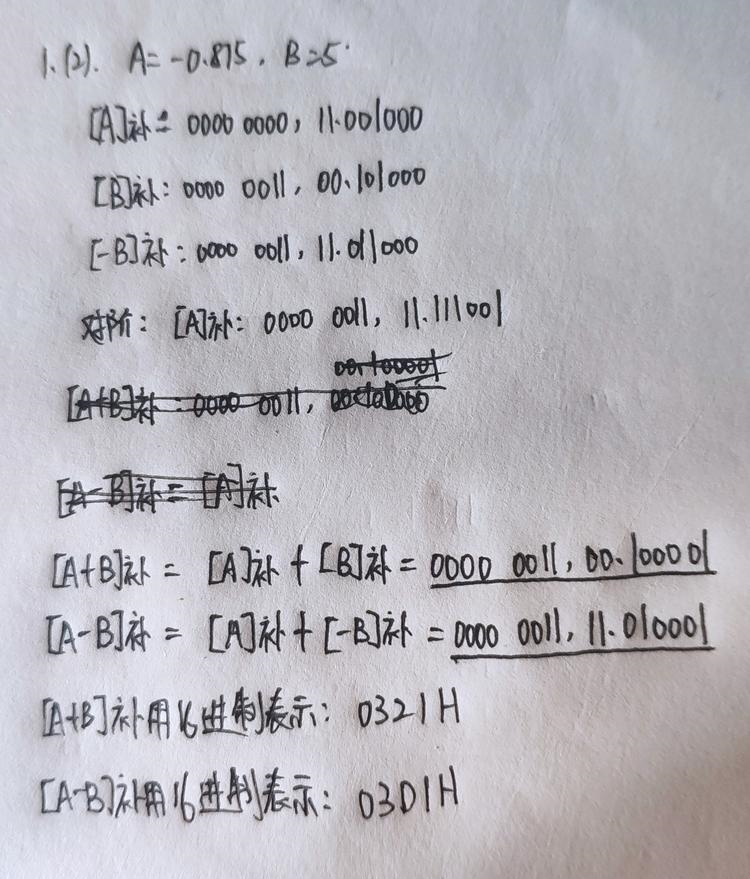 1.(2). A=-0.875, B=5
[A]补= 0000 0000, 11.001000
[B]补: 0000 0011, 00.101000
[-B]补: 0000 0011, 11.011000
对阶: [A]补: 0000 0011, 11.111001
[A+B]补: 0000 0011,
[A-B]补=[A]补
[A+B]补= [A]补+[B]补= 0000 0011, 00.100001
[A-B]补= [A]补+[-B]补= 0000 0011, 11.010001
[A+B]补用16进制表示: 0321H
[A-B]补用16进制表示: 03D1H